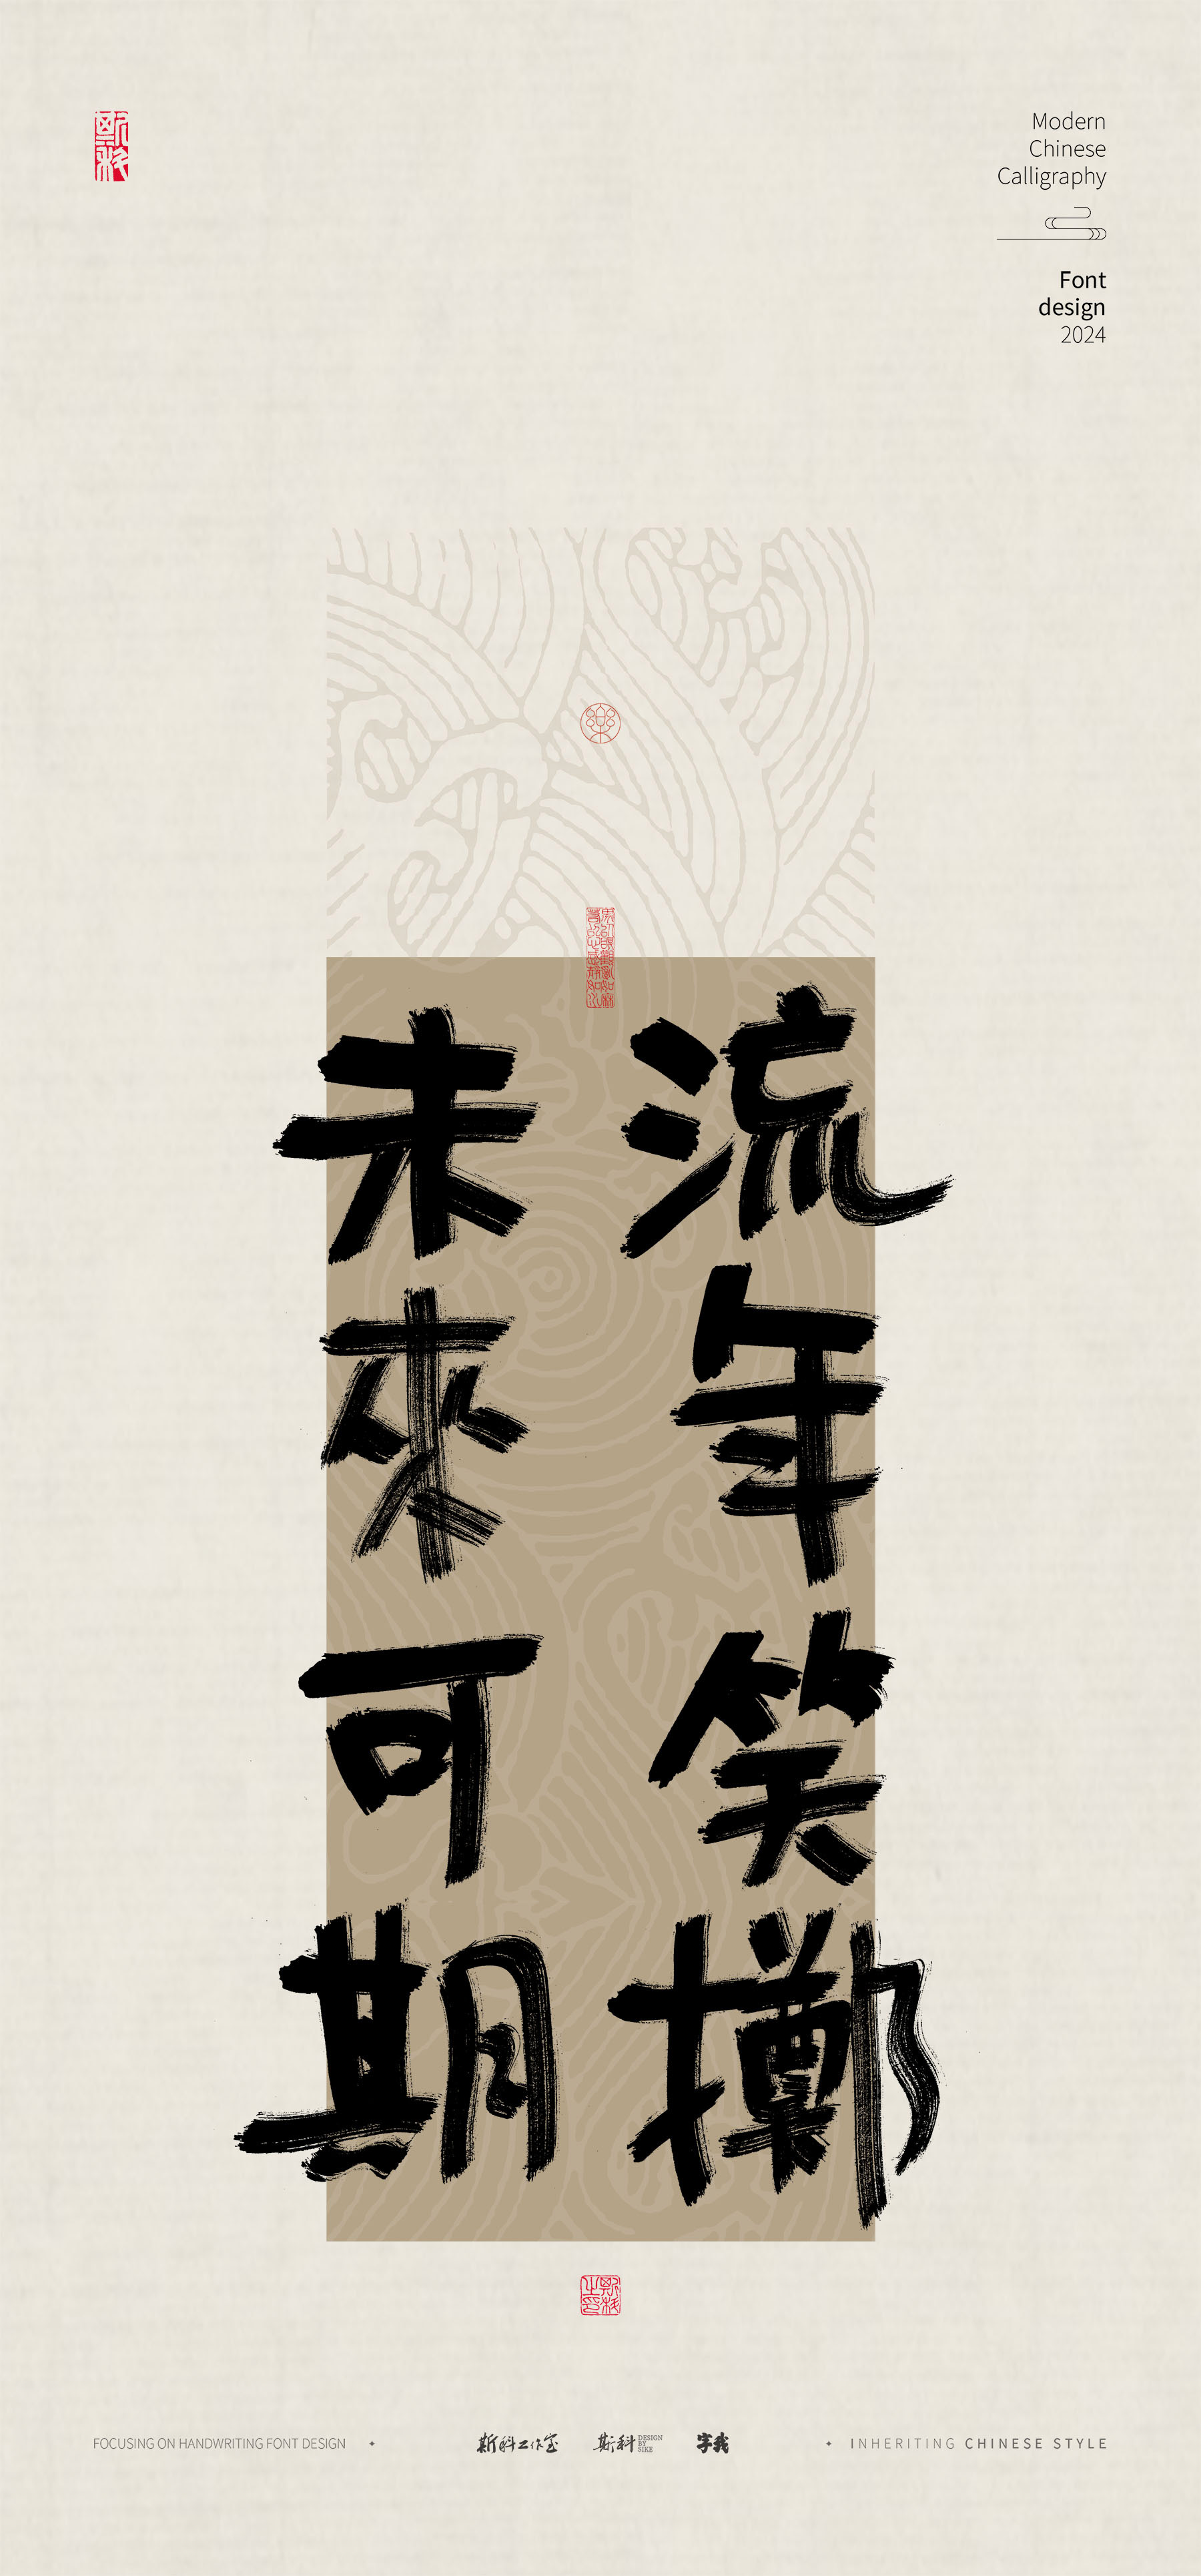 斯科
Modern
Chinese
Calligraphy
Font
design
2024
流年笑掷
未來可期
斯科之印
FOCUSING ON HANDWRITING FONT DESIGN
斯科工作室
斯科
DESIGN
BY
SIKE
字我
INHERITING CHINESE STYLE